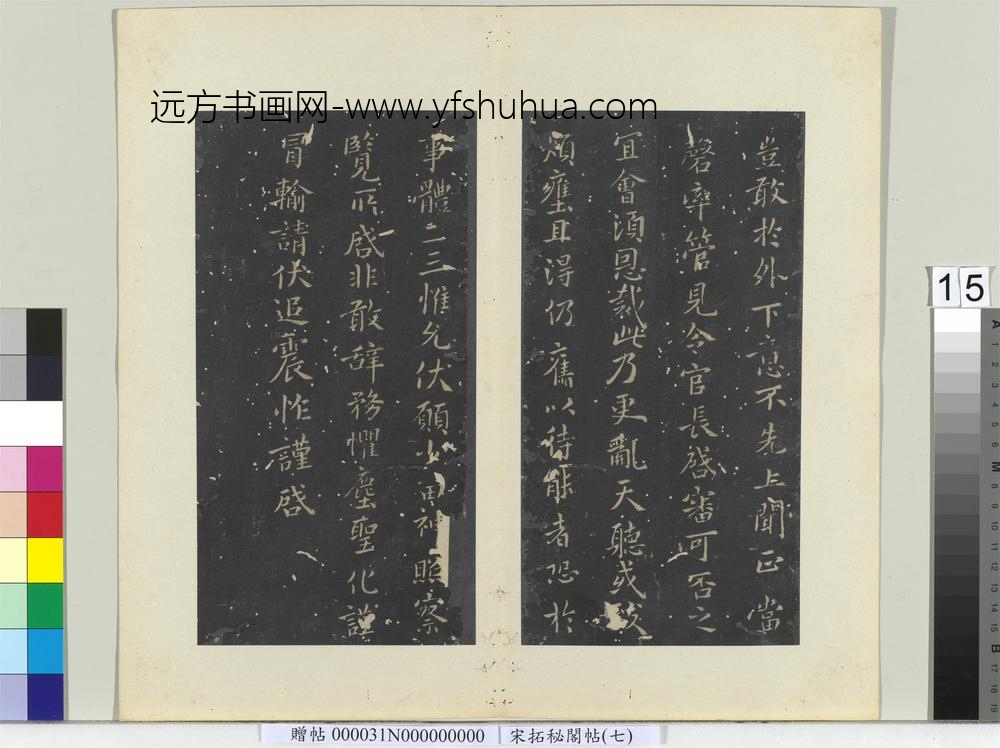 远方书画网-www.yfshuhua.com
豈敢於外下意不先上聞正當
罄率管見令官長啓審可否之
宜會須恩裁此乃更亂天聽或致
煩壅且得仍舊以待能者恐於
事體二三惟允伏願少 神照察
覽所啓非敢辞務懼塵聖化謹
冒輸請伏追震怍謹啓
15
A 1 2 3 4 5 6 M 8 9 10 11 12 13 14 15 B 17 18 19
贈帖 000031N000000000 宋拓秘閣帖(七)